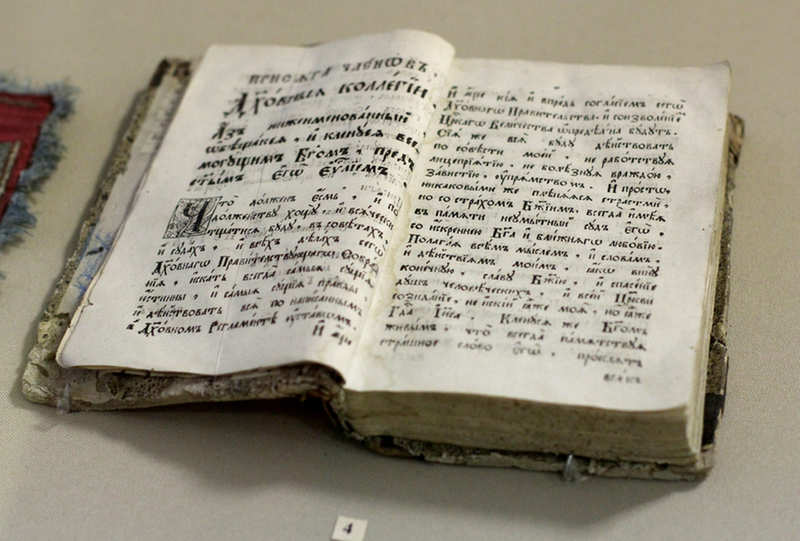 ПРИСѦГА ЧЛЕНѠВЪ
ДꙊХОВНЫѦ КОЛЛЕГІИ
Азъ нижеименованный
ѡбѣщаюсѧ, и кленꙋсѧ все
могꙋщимъ Бг҃омъ, предъ
ст҃ымъ єгѡ Еѵⷢ҇лїемъ
Что долженъ єсмь, и по
долженствꙋ хощꙋ, и всѧчески
тщатисѧ бꙋдꙋ, въ совѣтахъ
и сꙋдахъ, и всѣхъ дѣлахъ сегѡ
Дꙋховнагѡ Правителствꙋющагѡ Собра
нїѧ, искать всегда самыѧ сꙋщїѧ
истины, и самыѧ сꙋщїѧ правды
и дѣйствовать всѧ по написаннымъ
въ Дꙋховномъ Регламентѣ ꙋставамъ
И аще
И аще кїѧ и впредь согласїемъ сегѡ
Дꙋховнагѡ Правительства, и соизволенїемъ
Цр҃скагѡ Величества ѡпредѣлены бꙋдꙋтъ.
Сїѧ же всѧ бꙋдꙋ дѣйствовать
по совѣсти моей, не работствꙋѧ
лицепрїѧтїю, не болѣзнꙋѧ враждою,
завистїю, ꙋпрѧмствомъ. И простѡ
никаковыми же плѣнѧѧсѧ страстми,
но со страхомъ Бж҃їимъ, всегда имѣѧ
въ памѧти неумытный сꙋдъ єгѡ.
со искреннею Бг҃а и ближнѧгѡ любовїю.
Полагаѧ всѣмъ мыслемъ, и словамъ,
и дѣйствїѧмъ моимъ, ꙗкѡ винꙋ
конечнꙋю, славꙋ Бж҃їю, и спасенїе
дꙋшъ человѣческихъ, и всей Цр҃кви
созиданїе, не искїй ꙗже моѧ, но ꙗже
Гд҃а Іи҃са. Кленꙋсѧ же Бг҃омъ
живымъ, что всегда памѧтствꙋѧ
страшное слово єгѡ, проклѧтъ
всѧкъ
4